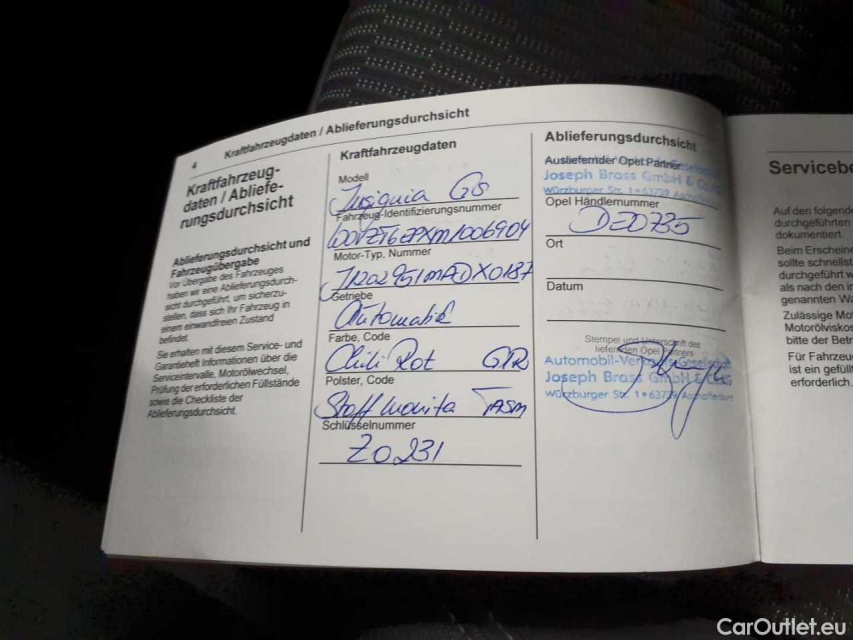 4 Kraftfahrzeugdaten / Ablieferungsdurchsicht
Kraftfahrzeug-
daten / Abliefe-
rungsdurchsicht
Ablieferungsdurchsicht und
Fahrzeugübergabe
Vor Übergabe des Fahrzeuges
haben wir eine Ablieferungsdurch-
sicht durchgeführt, um sicherzu-
stellen, dass sich Ihr Fahrzeug in
einem einwandfreien Zustand
befindet.
Sie erhalten mit diesem Service- und
Garantieheft Informationen über die
Serviceintervalle, Motorölwechsel,
Prüfung der erforderlichen Füllstände
sowie die Checkliste der
Ablieferungsdurchsicht.
Kraftfahrzeugdaten
Modell
Insignia GS
Fahrzeug-Identifizierungsnummer
W0VZT6EPXM1006904
Motor-Typ, Nummer
Getriebe
Automatik
Farbe, Code
Chili Rot
Polster, Code
Stoff
Schlüsselnummer
Z0231
Ablieferungsdurchsicht
Ausliefernder Opel Partner
Joseph Brass GmbH & Co
Würzburger Str. 1 • 63739 Aschaffenburg
Opel Händlernummer
DE0735
Ort
Datum
Stempel und Unterschrift des
liefernden Opel Partners
Joseph Brass GmbH & Co
Würzburger Str. 1 • 63739 Aschaffenburg
Auf den folgende
durchgeführten
dokumentiert.
Beim Erscheine
sollte schnellst
durchgeführt w
als nach den i
genannten Wa
Zulässige Mo
Motorölviskos
bitte der Betr
Für Fahrzeu
ist ein gefüll
erforderlich.
CarOutlet.eu